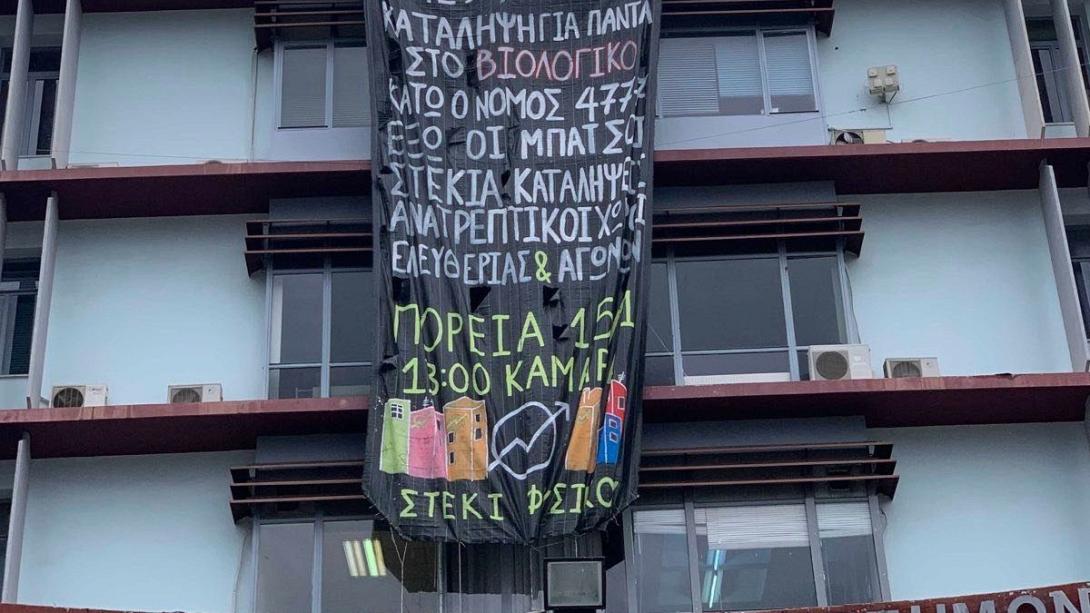 ΚΑΤΑΛΗΨΗ ΓΙΑ ΠΑΝΤΑ
ΣΤΟ ΒΙΟΛΟΓΙΚΟ
ΚΑΤΩ Ο ΝΟΜΟΣ 4777
ΕΞΩ ΟΙ ΜΠΑΤΣΟΙ
ΣΤΕΚΙΑ ΚΑΤΑΛΗΨΕΙΣ
ΑΝΑΤΡΕΠΤΙΚΟΙ ΧΩΡΟΙ
ΕΛΕΥΘΕΡΙΑΣ & ΑΓΩΝΩΝ
ΠΟΡΕΙΑ 15/1
13:00 ΚΑΜΑΡ
ΣΤΕΚΙ ΦΥΣΙΚΟ